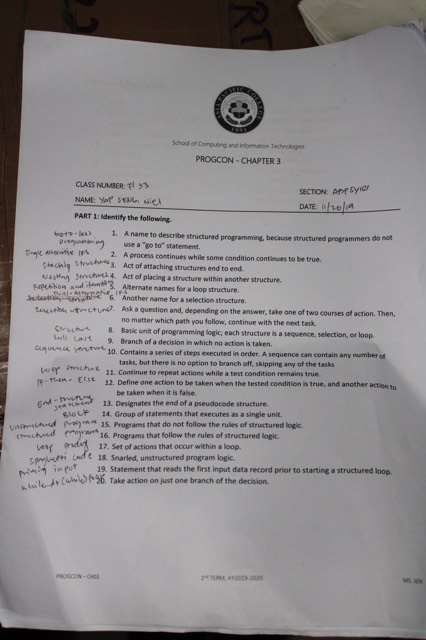 ASIA PACIFIC COLLEGE
1991
School of Computing and Information Technologies
PROGCON - CHAPTER 3
CLASS NUMBER: 33
SECTION:
NAME: Yap Niel
DATE: 11/20/19
PART 1: Identify the following.
goto-less programming 1. A name to describe structured programming, because structured programmers do not
use a "go to" statement.
2. A process continues while some condition continues to be true.
Stacking structures 3. Act of attaching structures end to end.
Nesting structures 4. Act of placing a structure within another structure.
Repetition and iteration 5. Alternate names for a loop structure.
6. Another name for a selection structure.
Selection structure 7. Ask a question and, depending on the answer, take one of two courses of action. Then,
no matter which path you follow, continue with the next task.
Structure 8. Basic unit of programming logic; each structure is a sequence, selection, or loop.
null case 9. Branch of a decision in which no action is taken.
sequence structure 10. Contains a series of steps executed in order. A sequence can contain any number of
tasks, but there is no option to branch off, skipping any of the tasks
Loop structure 11. Continue to repeat actions while a test condition remains true.
If-then-Else 12. Define one action to be taken when the tested condition is true, and another action to
be taken when it is false.
End-structure statement 13. Designates the end of a pseudocode structure.
Block 14. Group of statements that executes as a single unit.
unstructured programs 15. Programs that do not follow the rules of structured logic.
structured programs 16. Programs that follow the rules of structured logic.
loop body 17. Set of actions that occur within a loop.
spaghetti code 18. Snarled, unstructured program logic.
priming input 19. Statement that reads the first input data record prior to starting a structured loop.
while-do (while) 20. Take action on just one branch of the decision.
PROGCON - CH03
2ND TERM, AY2019-2020